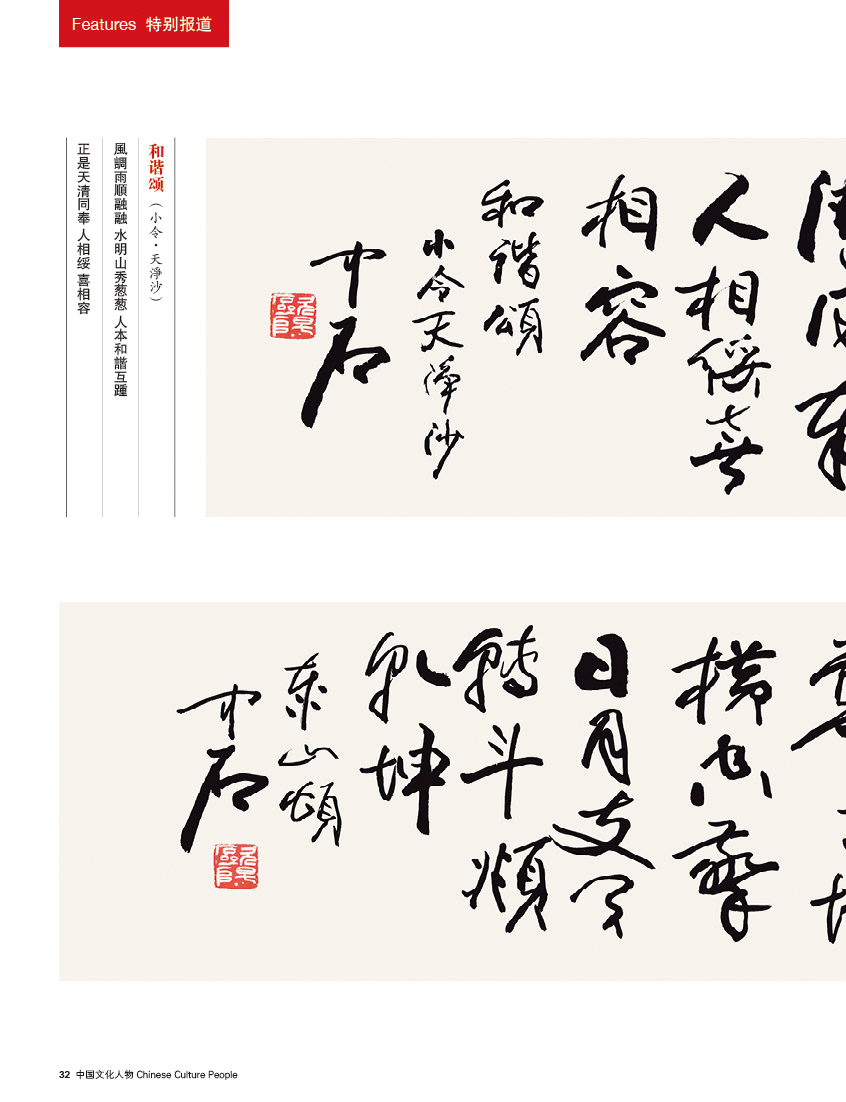 Features 特别报道
和谐颂（小令·天淨沙）
風調雨順融融 水明山秀葱葱 人本和諧互踵
正是天清同奉 人相綏 喜相容
人相綏喜
相容
和諧頌
小令天淨沙
中石
橫空擎
日月支
轉斗
乾坤
泰山頌
中石
32 中国文化人物 Chinese Culture People